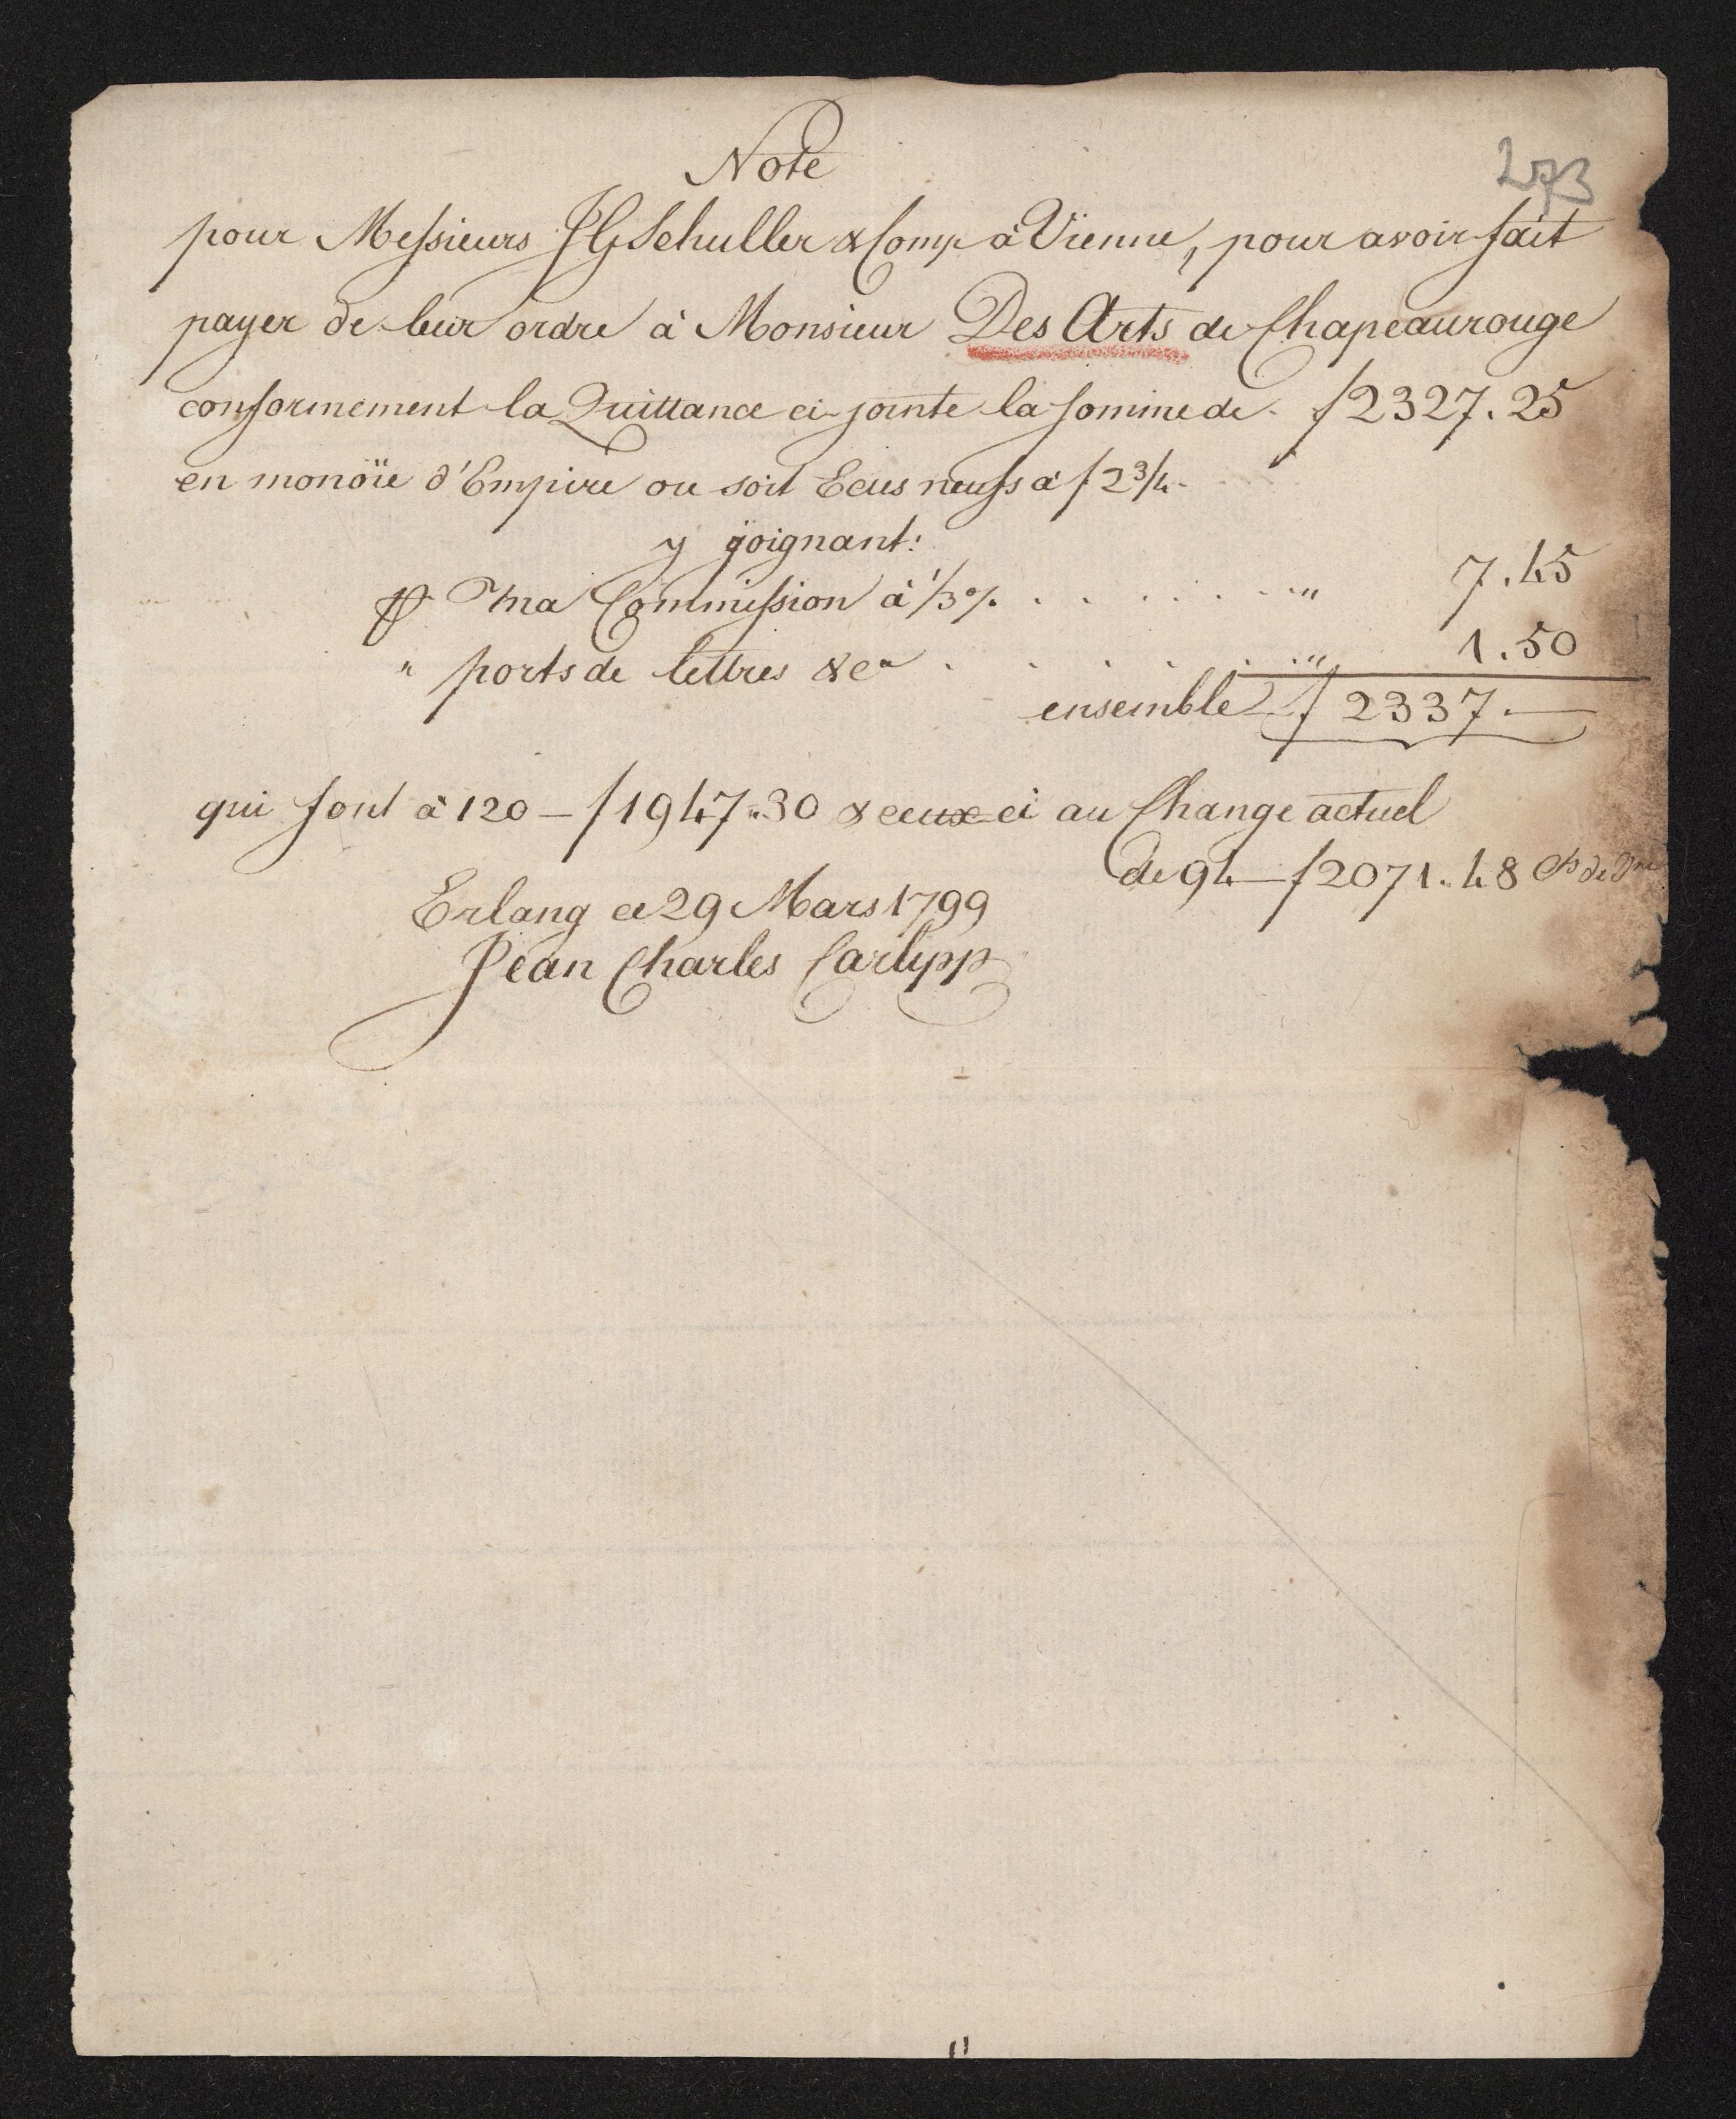 Note
273
pour Messieurs JG Schuller & Comp à Vienne, pour avoir fait
payer de leur ordre à Monsieur Des Arts de Chapeaurouge
conformement la Quittance ci-jointe la somme de f 2327. 25
en monoïe d'Empire ou soit Ecus neufs à f 2 3/4.
y joignant:
ꝑ ma Commission à 1/3 % . . . . . . . " 7. 45
" ports de lettres &ca . . . . . . " 1. 50
ensemble f 2337. —
qui font à 120 — f 1947. 30 & ceux-ci au Change actuel
de 94 — f 2071. 48
Erlang ce 29 Mars 1799
Jean Charles